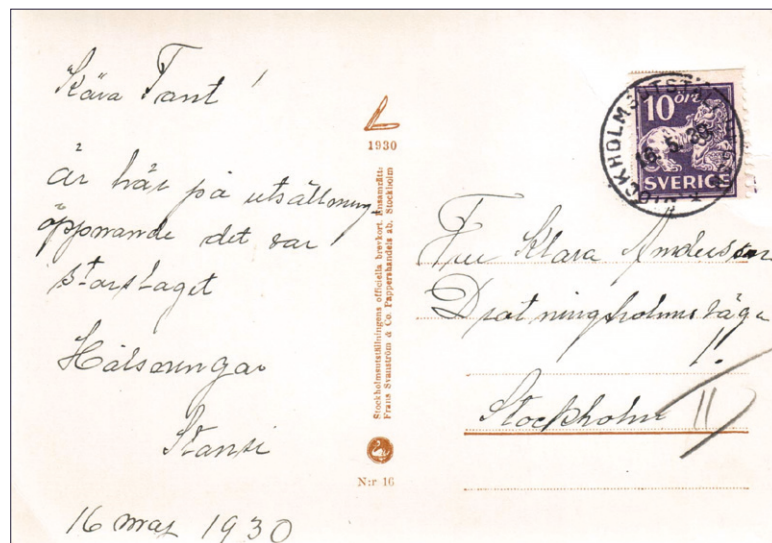 Kära Tant!
är här på utsällning
öppnande det var
storslaget
Hälsningar
16 maj 1930
1930
Stockholmsutställningens officiella brevkort. Ensamrätt:
Frans Svanström & Co. Pappershandels ab. Stockholm
N:r 16
STOCKHOLM
16.5.30
10 ÖRE
SVERIGE
Fru Klara Andersson
Drotningholmsväge
11
Stockholm
11